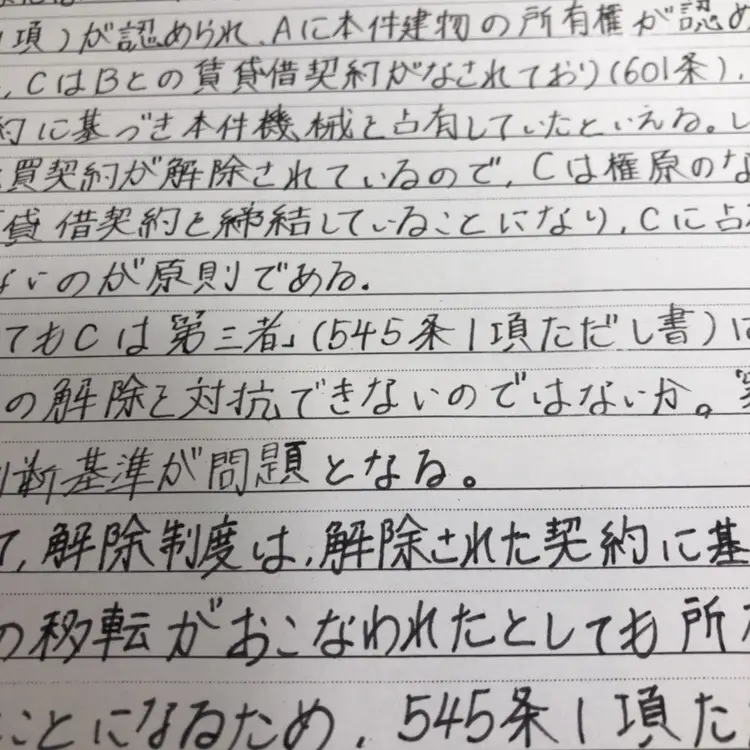 項)が認められ、Aに本件建物の所有権が認め
、CはBとの賃貸借契約がなされており(601条)、
約に基づき本件機械を占有していたといえる。し
買契約が解除されているので、Cは権原のな
賃貸借契約を締結していることになり、Cに占
ないのが原則である。
てもCは「第三者」(545条1項ただし書)に
の解除を対抗できないのではないか。
判断基準が問題となる。
て、解除制度は、解除された契約に基
の移転がおこなわれたとしても所
ことになるため、545条1項た